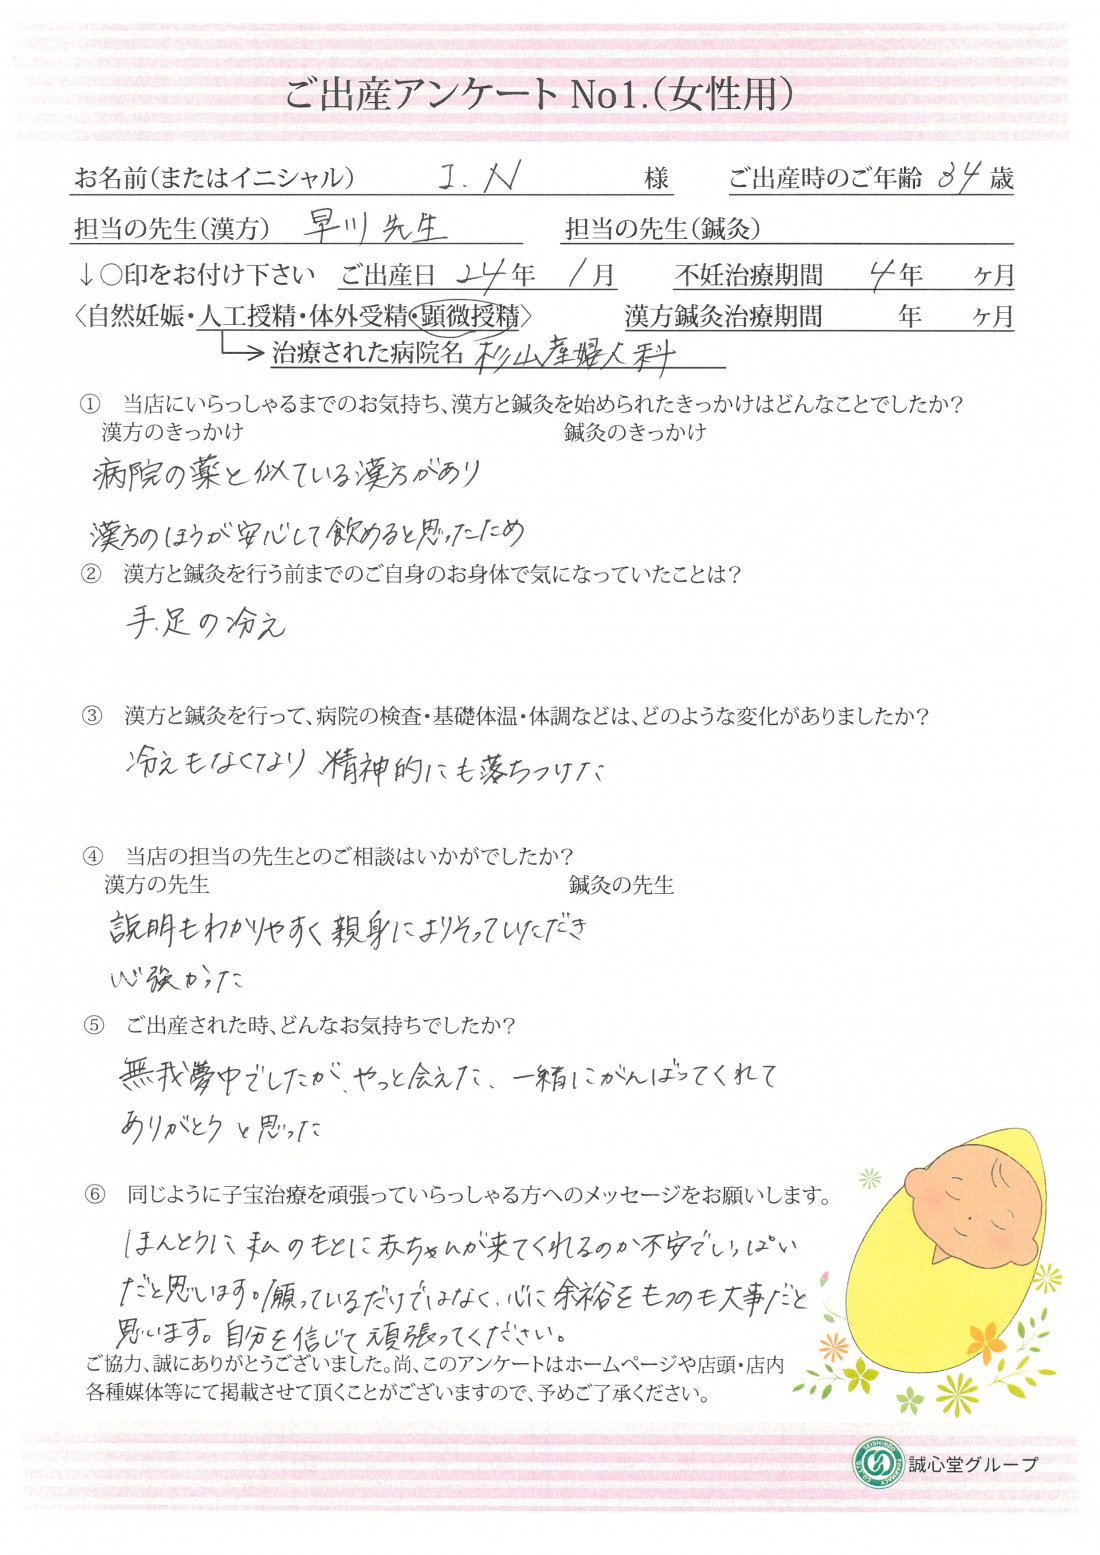 ご出産アンケート No1.（女性用）
お名前（またはイニシャル） I.N 様 ご出産時のご年齢 34 歳
担当の先生（漢方） 早川先生 担当の先生（鍼灸）
↓○印をお付け下さい ご出産日 24年 1月 不妊治療期間 4年 ヶ月
〈自然妊娠・人工授精・体外受精・顕微授精〉 漢方鍼灸治療期間 年 ヶ月
治療された病院名 杉山産婦人科
① 当店にいらっしゃるまでのお気持ち、漢方と鍼灸を始められたきっかけはどんなことでしたか？
漢方のきっかけ 鍼灸のきっかけ
病院の薬と似ている漢方があり
漢方のほうが安心して飲めると思ったため
② 漢方と鍼灸を行う前までのご自身のお身体で気になっていたことは？
手、足の冷え
③ 漢方と鍼灸を行って、病院の検査・基礎体温・体調などは、どのような変化がありましたか？
冷えもなくなり、精神的にも落ちつけた
④ 当店の担当の先生とのご相談はいかがでしたか？
漢方の先生 鍼灸の先生
説明もわかりやすく親身によりそっていただき
心強かった
⑤ ご出産された時、どんなお気持ちでしたか？
無我夢中でしたが、やっと会えた、一緒にがんばってくれて
ありがとう と思った
⑥ 同じように子宝治療を頑張っていらっしゃる方へのメッセージをお願いします。
ほんとうに 私のもとに赤ちゃんが来てくれるのか不安でいっぱい
だと思います。願っているだけではなく、心に余裕をもつのも大事だと
思います。自分を信じて頑張ってください。
ご協力、誠にありがとうございました。尚、このアンケートはホームページや店頭・店内
各種媒体等にて掲載させて頂くことがございますので、予めご了承ください。
SEISHINDO PHARMACY CO.,LTD. 誠心堂グループ